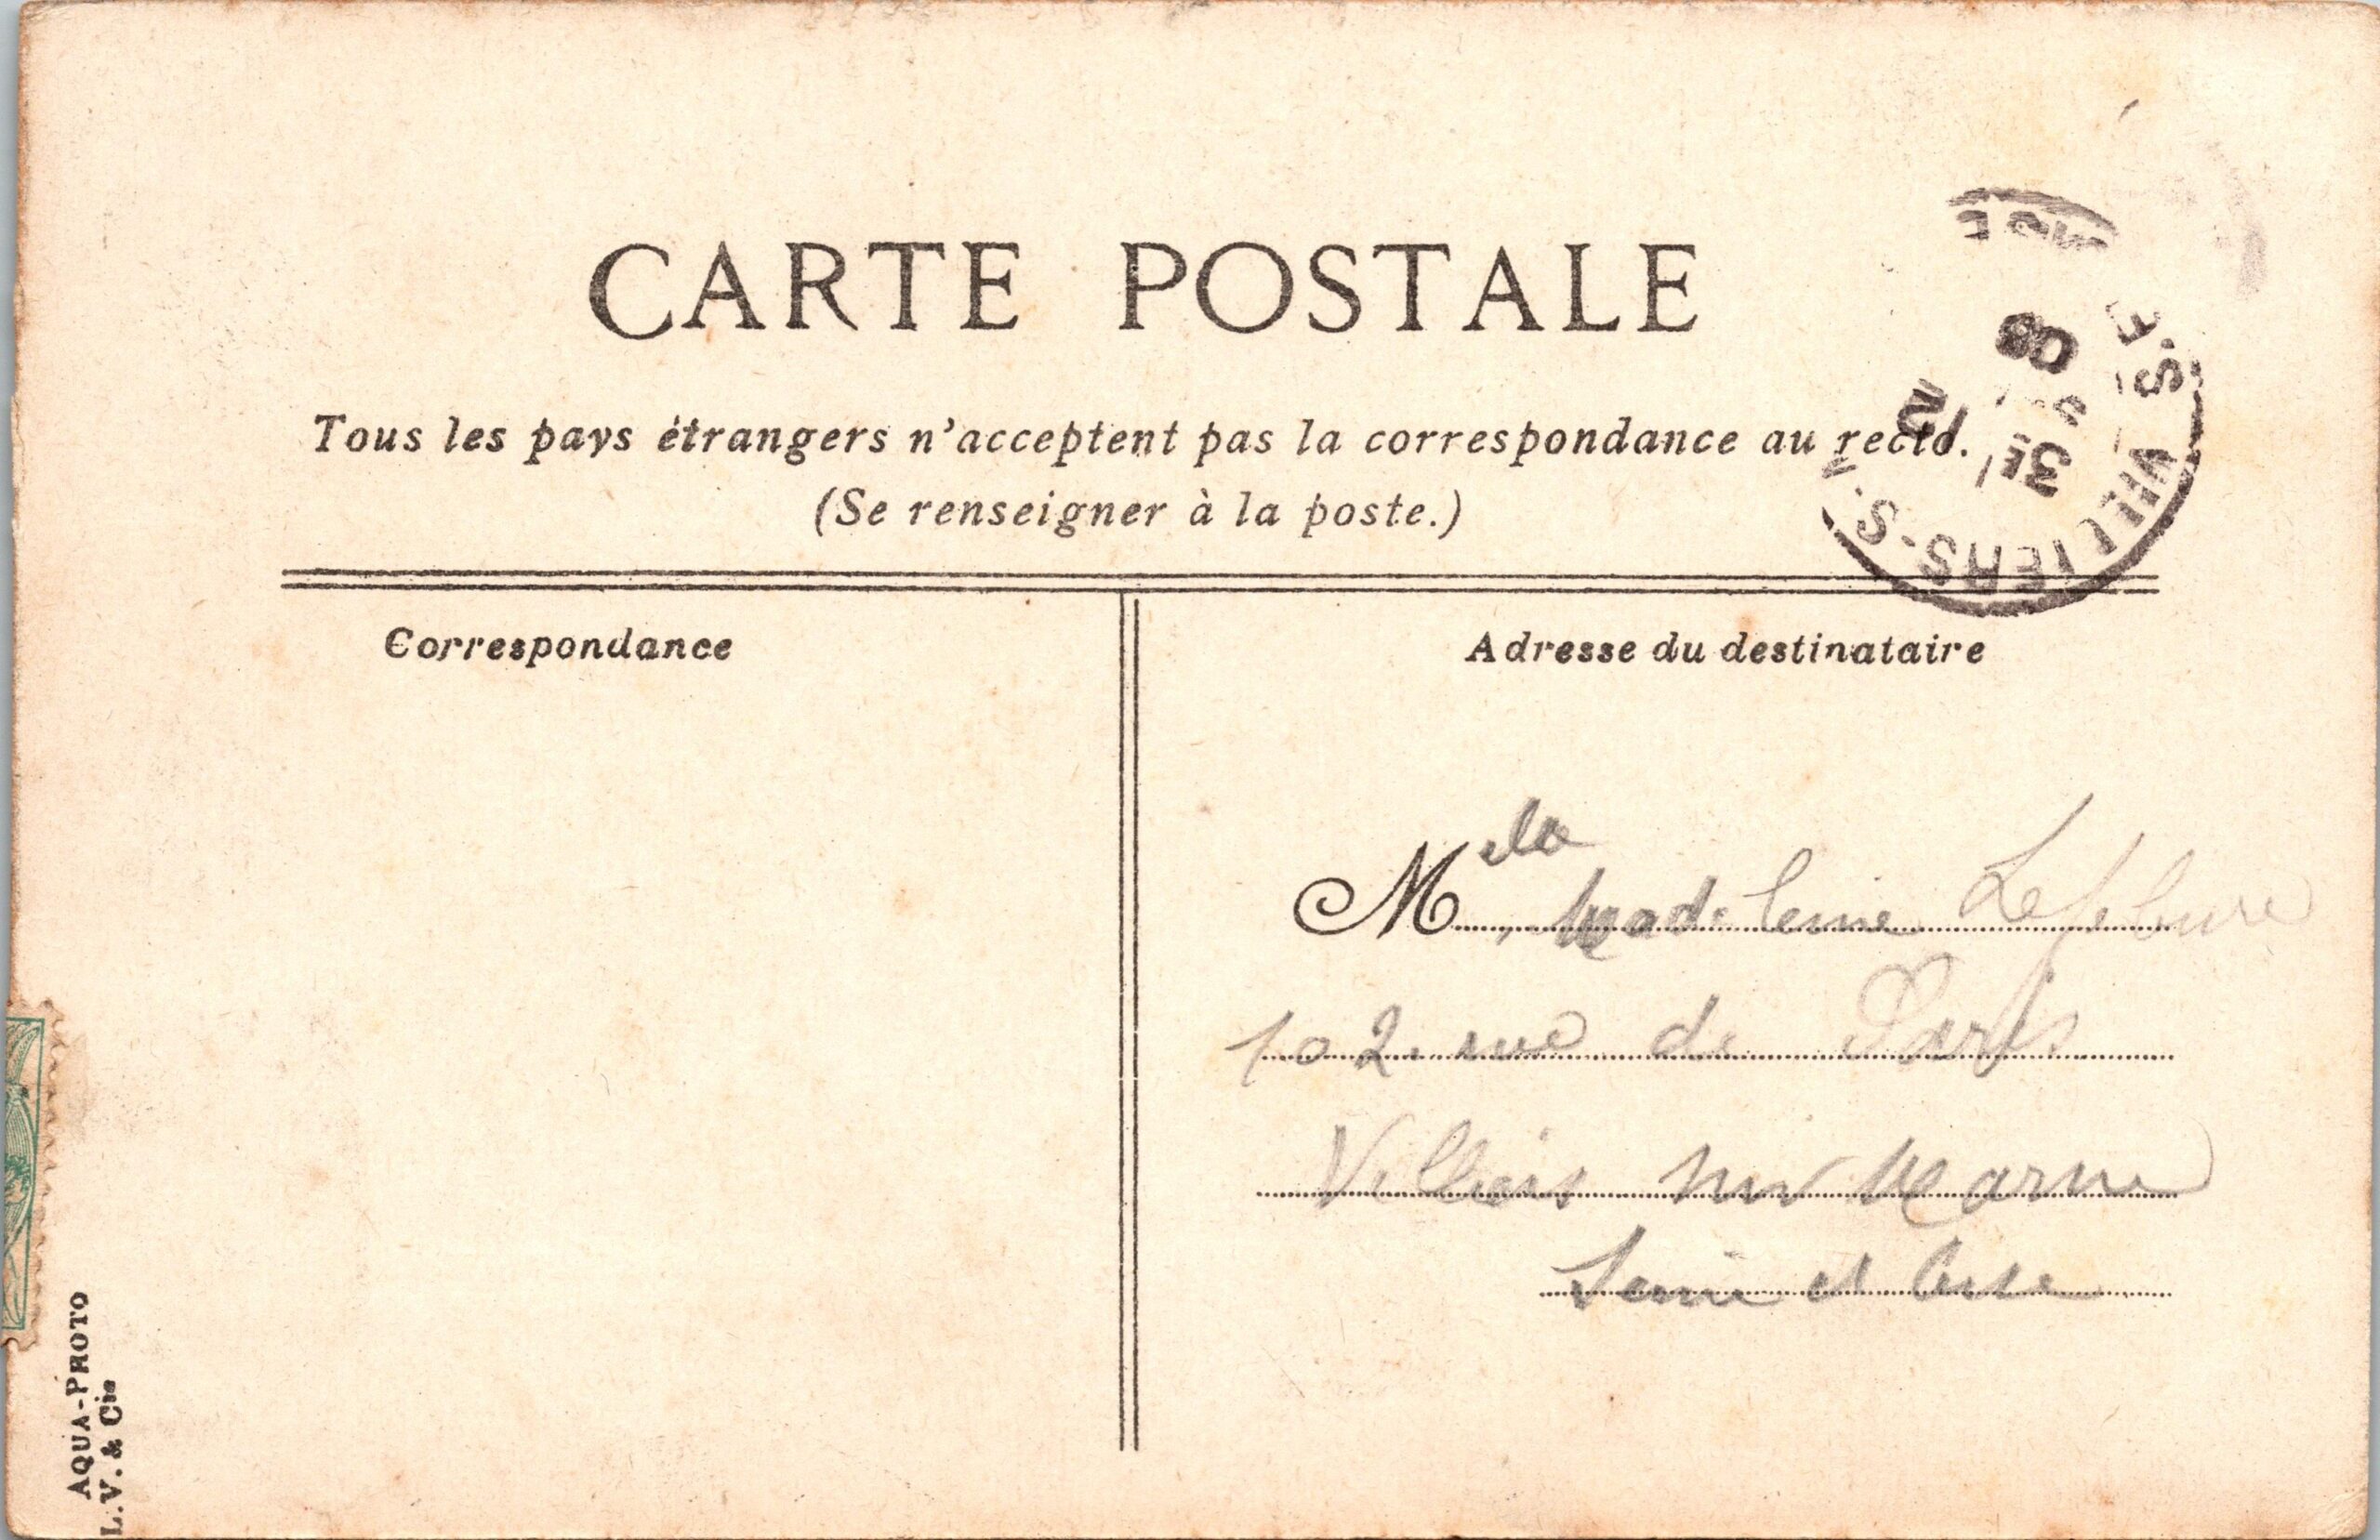 CARTE POSTALE
Tous les pays étrangers n'acceptent pas la correspondance au recto.
(Se renseigner à la poste.)
Correspondance
Adresse du destinataire
Mlle Madeleine Lefebure
102 rue de Paris
Villiers sur Marne
Seine et Oise
VILLIERS.S.
12
31
08
AQUA-PROTO
L.V. & Cie